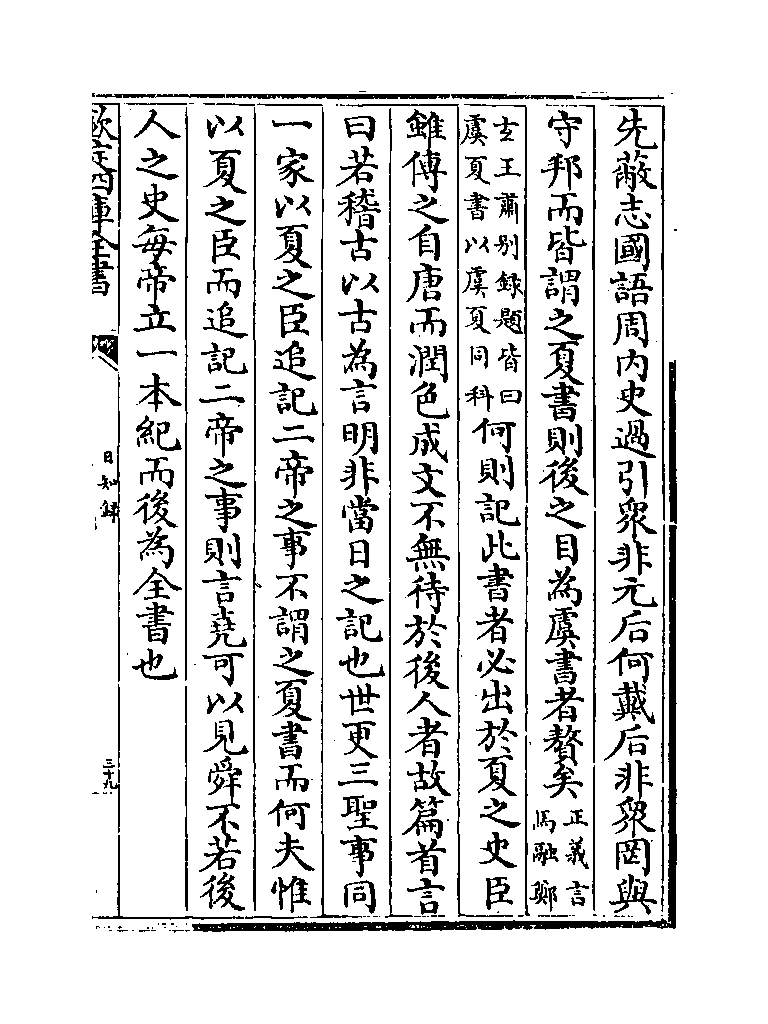 先蔽志國語周内史過引衆非元后何戴后非衆罔與
守邦而皆謂之夏書則後之目為虞書者贅矣正義言馬融鄭
玄王肅别録題皆曰虞夏書以虞夏同科何則記此書者必出於夏之史臣
雖傳之自唐而潤色成文不無待於後人者故篇首言
曰若稽古以古為言明非當日之記也世更三聖事同
一家以夏之臣追記二帝之事不謂之夏書而何夫惟
以夏之臣而追記二帝之事則言堯可以見舜不若後
人之史每帝立一本紀而後為全書也
欽定四庫全書
日知錄
三十九